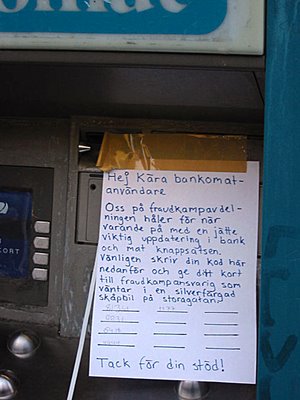 omat
KORT
Hej Kära bankomat-
användare
Oss på fraudkampavdel-
ningen håler för när
varande på med en jätte
viktig uppdatering i bank
och mat knappsatsen.
Vänligen skriv din kod här
nedanför och ge ditt kort
till fraudkampansvarig som
väntar i en silverfärgad
skåpbil på storagatan.
Tack för din stöd!